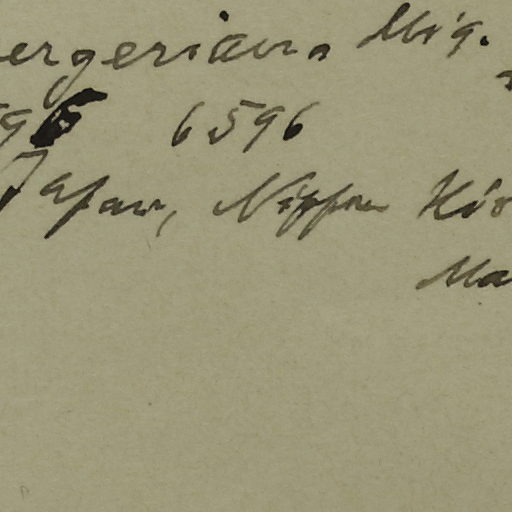 ergeriana Miq.
6596
Japan, Nippon Kio
Ma